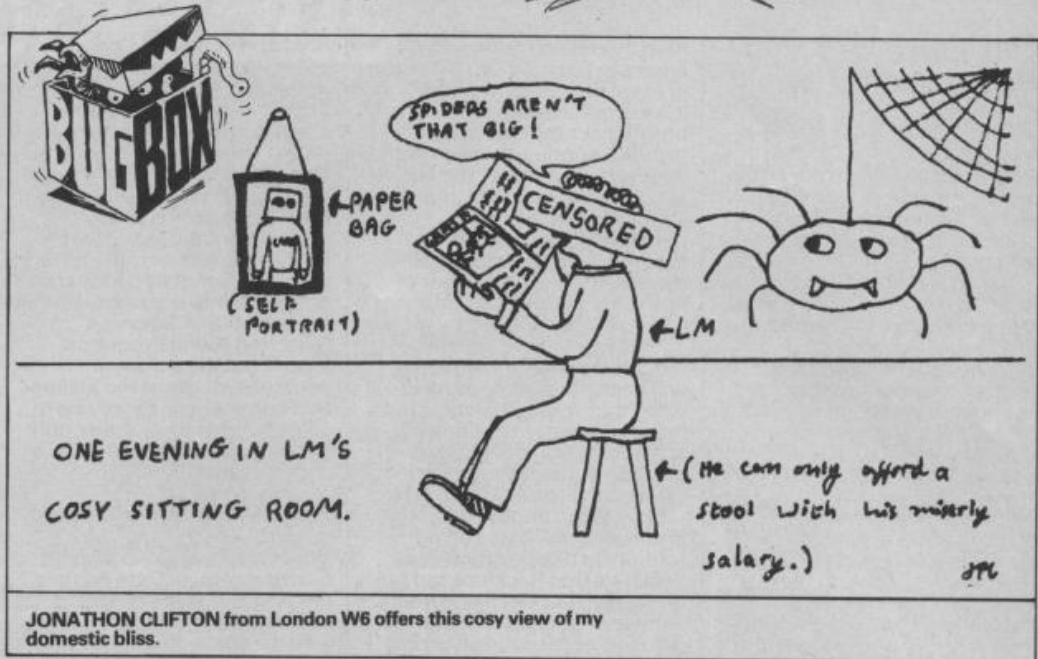 BUG BOX
SPIDERS AREN'T
THAT BIG!
CENSORED
PAPER
BAG
(SELF
PORTRAIT)
LM
ONE EVENING IN LM'S
COSY SITTING ROOM.
(He can only afford a
stool with his miserly
salary.)
JONATHON CLIFTON from London W6 offers this cosy view of my
domestic bliss.